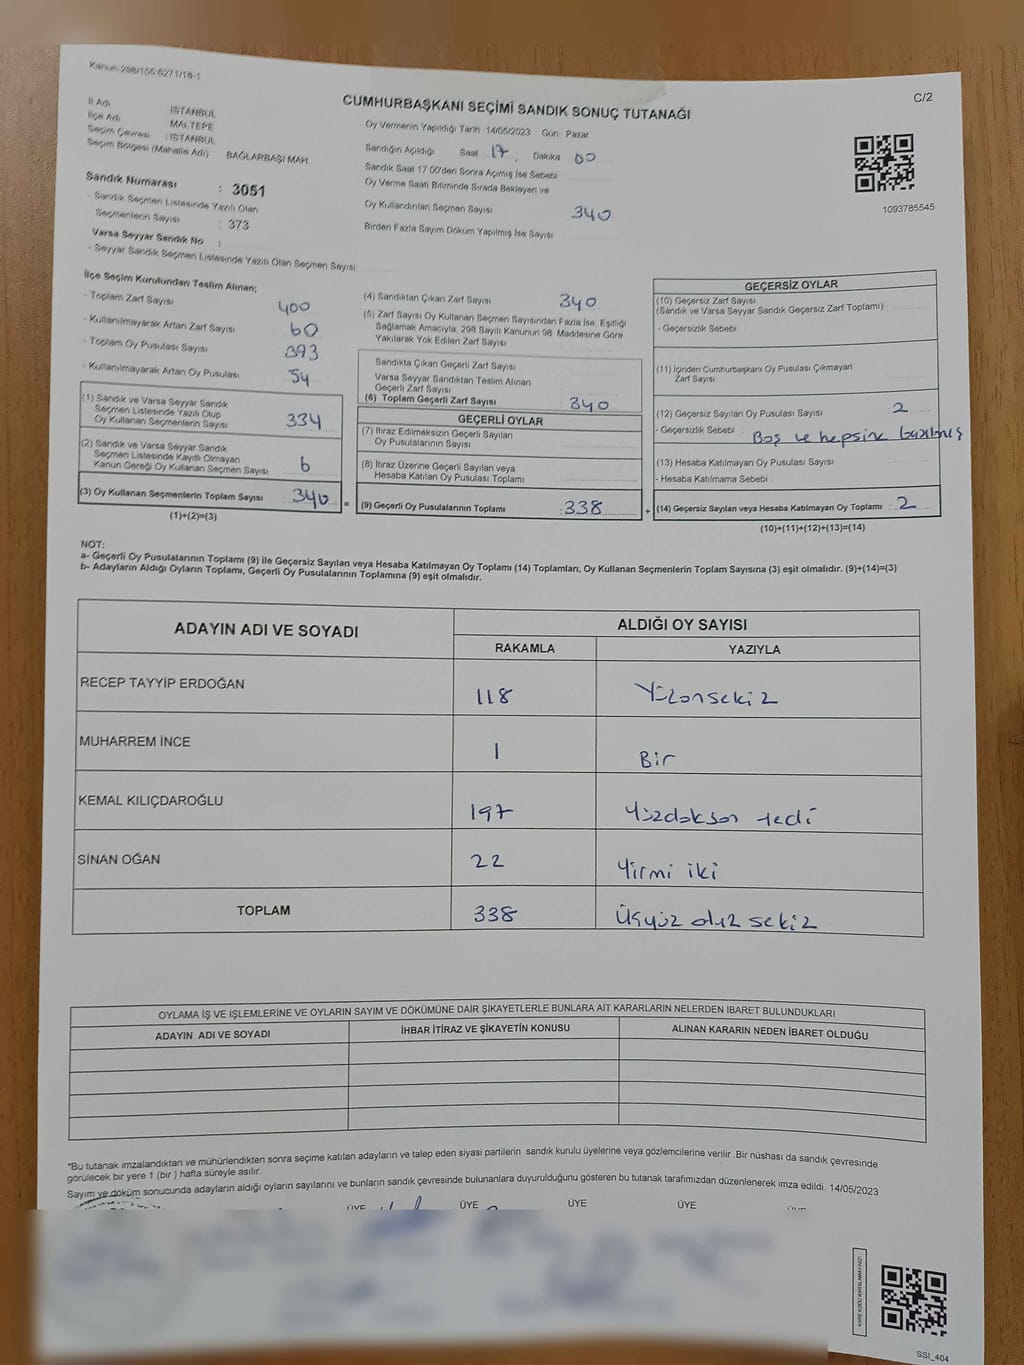 Kanun:298/105 6271/18-1
C/2
CUMHURBAŞKANI SEÇİMİ SANDIK SONUÇ TUTANAĞI
İl Adı İSTANBUL
İlçe Adı MALTEPE
Seçim Çevresi : İSTANBUL
Seçim Bölgesi (Mahalle Adı) BAĞLARBAŞI MAH.
Sandık Numarası : 3051
- Sandık Seçmen Listesinde Yazılı Olan
Seçmenlerin Sayısı : 373
Varsa Seyyar Sandık No :
- Seyyar Sandık Seçmen Listesinde Yazılı Olan Seçmen Sayısı
Oy Vermenin Yapıldığı Tarih 14/05/2023 Gün: Pazar
Sandığın Açıldığı Saat 17 Dakika 00
Sandık Saat 17.00'den Sonra Açımış İse Sebebi
Oy Verme Saati Bitiminde Sırada Bekleyen ve
Oy Kullandırılan Seçmen Sayısı 340
Birden Fazla Sayım Döküm Yapılmış İse Sayısı
1093785545
İlçe Seçim Kurulundan Teslim Alınan;
- Toplam Zarf Sayısı 400
- Kullanılmayarak Artan Zarf Sayısı 60
- Toplam Oy Pusulası Sayısı 393
- Kullanılmayarak Artan Oy Pusulası 54
(1) Sandık ve Varsa Seyyar Sandık
Seçmen Listesinde Yazılı Olup
Oy Kullanan Seçmenlerin Sayısı 334
(2) Sandık ve Varsa Seyyar Sandık
Seçmen Listesinde Kayıtlı Olmayan
Kanun Gereği Oy Kullanan Seçmen Sayısı 6
(3) Oy Kullanan Seçmenlerin Toplam Sayısı : 340 =
(1)+(2)=(3)
(4) Sandıktan Çıkan Zarf Sayısı 340
(5) Zarf Sayısı Oy Kullanan Seçmen Sayısından Fazla İse, Eşitliği
Sağlamak Amacıyla, 298 Sayılı Kanunun 98. Maddesine Göre
Yakılarak Yok Edilen Zarf Sayısı
Sandıkta Çıkan Geçerli Zarf Sayısı
Varsa Seyyar Sandıktan Teslim Alınan
Geçerli Zarf Sayısı
(6) Toplam Geçerli Zarf Sayısı 340
GEÇERLİ OYLAR
(7) İtiraz Edilmeksizin Geçerli Sayılan
Oy Pusulalarının Sayısı
(8) İtiraz Üzerine Geçerli Sayılan veya
Hesaba Katılan Oy Pusulası Toplamı
(9) Geçerli Oy Pusulalarının Toplamı :338 +
GEÇERSİZ OYLAR
(10) Geçersiz Zarf Sayısı
(Sandık ve Varsa Seyyar Sandık Geçersiz Zarf Toplamı)
- Geçersizlik Sebebi
(11) İçinden Cumhurbaşkanı Oy Pusulası Çıkmayan
Zarf Sayısı
(12) Geçersiz Sayılan Oy Pusulası Sayısı 2
- Geçersizlik Sebebi Boş ve hepsine basılmış
(13) Hesaba Katılmayan Oy Pusulası Sayısı
- Hesaba Katılmama Sebebi
(14) Geçersiz Sayılan veya Hesaba Katılmayan Oy Toplamı : 2
(10)+(11)+(12)+(13)=(14)
NOT:
a- Geçerli Oy Pusulalarının Toplamı (9) ile Geçersiz Sayılan veya Hesaba Katılmayan Oy Toplamı (14) Toplamları, Oy Kullanan Seçmenlerin Toplam Sayısına (3) eşit olmalıdır. (9)+(14)=(3)
b- Adayların Aldığı Oyların Toplamı, Geçerli Oy Pusulalarının Toplamına (9) eşit olmalıdır.
ADAYIN ADI VE SOYADI ALDIĞI OY SAYISI
RAKAMLA YAZIYLA
RECEP TAYYİP ERDOĞAN 118 Yüzonsekiz
MUHARREM İNCE 1 Bir
KEMAL KILIÇDAROĞLU 197 Yüzdoksan Yedi
SİNAN OĞAN 22 Yirmi iki
TOPLAM 338 Üçyüz otuz sekiz
OYLAMA İŞ VE İŞLEMLERİNE VE OYLARIN SAYIM VE DÖKÜMÜNE DAİR ŞİKAYETLERLE BUNLARA AİT KARARLARIN NELERDEN İBARET BULUNDUKLARI
ADAYIN ADI VE SOYADI İHBAR İTİRAZ VE ŞİKAYETİN KONUSU ALINAN KARARIN NEDEN İBARET OLDUĞU
*Bu tutanak imzalandıktan ve mühürlendikten sonra seçime katılan adayların ve talep eden siyasi partilerin sandık kurulu üyelerine veya gözlemcilerine verilir .Bir nüshası da sandık çevresinde
görülecek bir yere 1 (bir ) hafta süreyle asılır.
Sayım ve döküm sonucunda adayların aldığı oyların sayılarını ve bunların sandık çevresinde bulunanlara duyurulduğunu gösteren bu tutanak tarafımızdan düzenlenerek imza edildi. 14/05/2023
ÜYE ÜYE ÜYE ÜYE ÜYE
KARE KODU KARALAMAYINIZ!
SSI_404